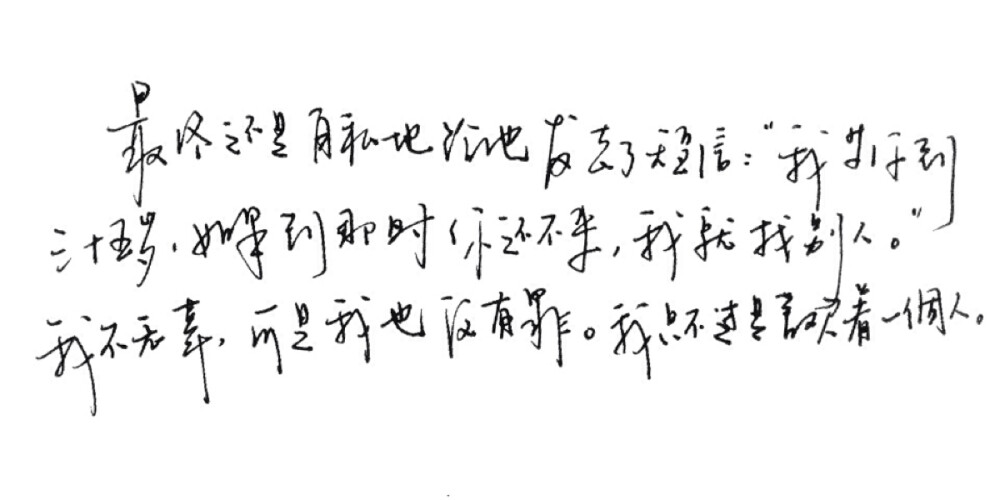 最终还是自私地给他发去了短信："我等你到
三十五岁，如果到那时你还不来，我就找别人。"
我不无辜，可是我也没有罪。我只不过是喜欢着一個人。